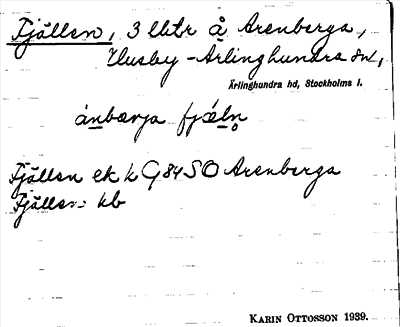 Fjällen, 3 lltr å Arenberga,
Husby-Ärlinghundra sn,
Ärlinghundra hd, Stockholms l.
ánbærja fjæln
Fjällen ek k G 84 SO Arenberga
Fjällen: kb
KARIN OTTOSSON 1939.